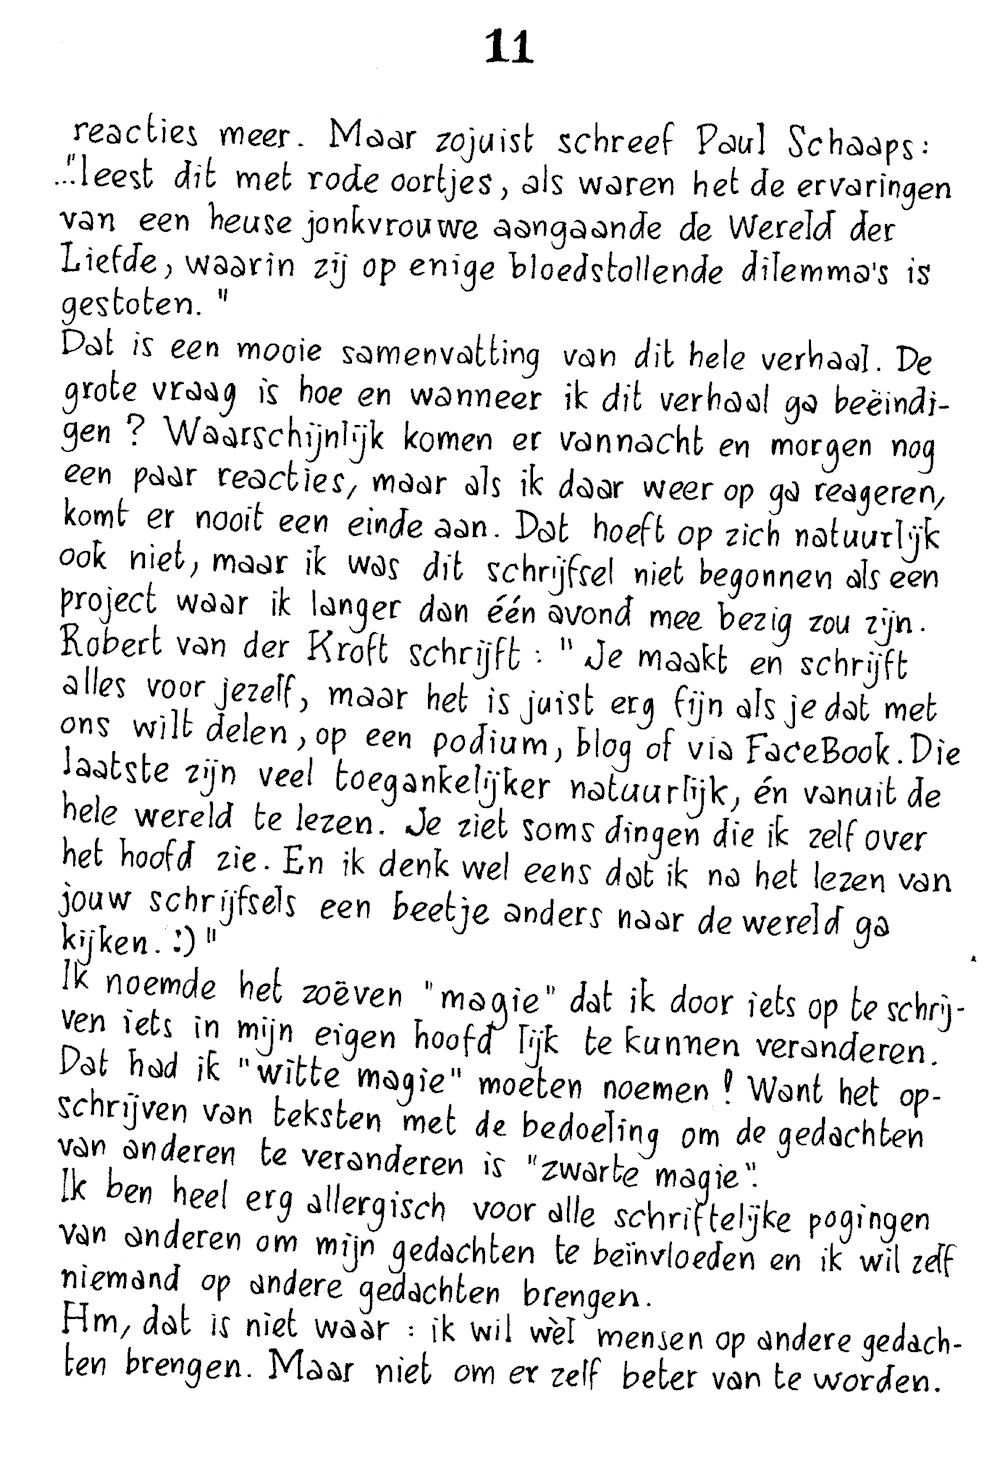 11
reacties meer. Maar zojuist schreef Paul Schaaps:
..."leest dit met rode oortjes, als waren het de ervaringen
van een heuse jonkvrouwe aangaande de Wereld der
Liefde, waarin zij op enige bloedstollende dilemma's is
gestoten."
Dat is een mooie samenvatting van dit hele verhaal. De
grote vraag is hoe en wanneer ik dit verhaal ga beëindi-
gen? Waarschijnlijk komen er vannacht en morgen nog
een paar reacties, maar als ik daar weer op ga reageren,
komt er nooit een einde aan. Dat hoeft op zich natuurlijk
ook niet, maar ik was dit schrijfsel niet begonnen als een
project waar ik langer dan één avond mee bezig zou zijn.
Robert van der Kroft schrijft: "Je maakt en schrijft
alles voor jezelf, maar het is juist erg fijn als je dat met
ons wilt delen, op een podium, blog of via FaceBook. Die
laatste zijn veel toegankelijker natuurlijk, én vanuit de
hele wereld te lezen. Je ziet soms dingen die ik zelf over
het hoofd zie. En ik denk wel eens dat ik na het lezen van
jouw schrijfsels een beetje anders naar de wereld ga
kijken. :)"
Ik noemde het zoëven "magie" dat ik door iets op te schrij-
ven iets in mijn eigen hoofd lijk te kunnen veranderen.
Dat had ik "witte magie" moeten noemen! Want het op-
schrijven van teksten met de bedoeling om de gedachten
van anderen te veranderen is "zwarte magie".
Ik ben heel erg allergisch voor alle schriftelijke pogingen
van anderen om mijn gedachten te beïnvloeden en ik wil zelf
niemand op andere gedachten brengen.
Hm, dat is niet waar: ik wil wèl mensen op andere gedach-
ten brengen. Maar niet om er zelf beter van te worden.